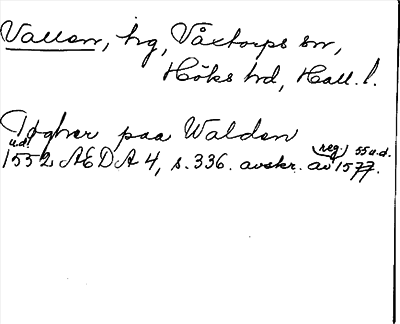 Vallen, hg, Våxtorps sn,
Höks hd, Hall. l.
Tøgher paa Walden
u.d. (reg.) 55 u.d.
1552 ÆDA 4, s. 336. avskr. av 1577.